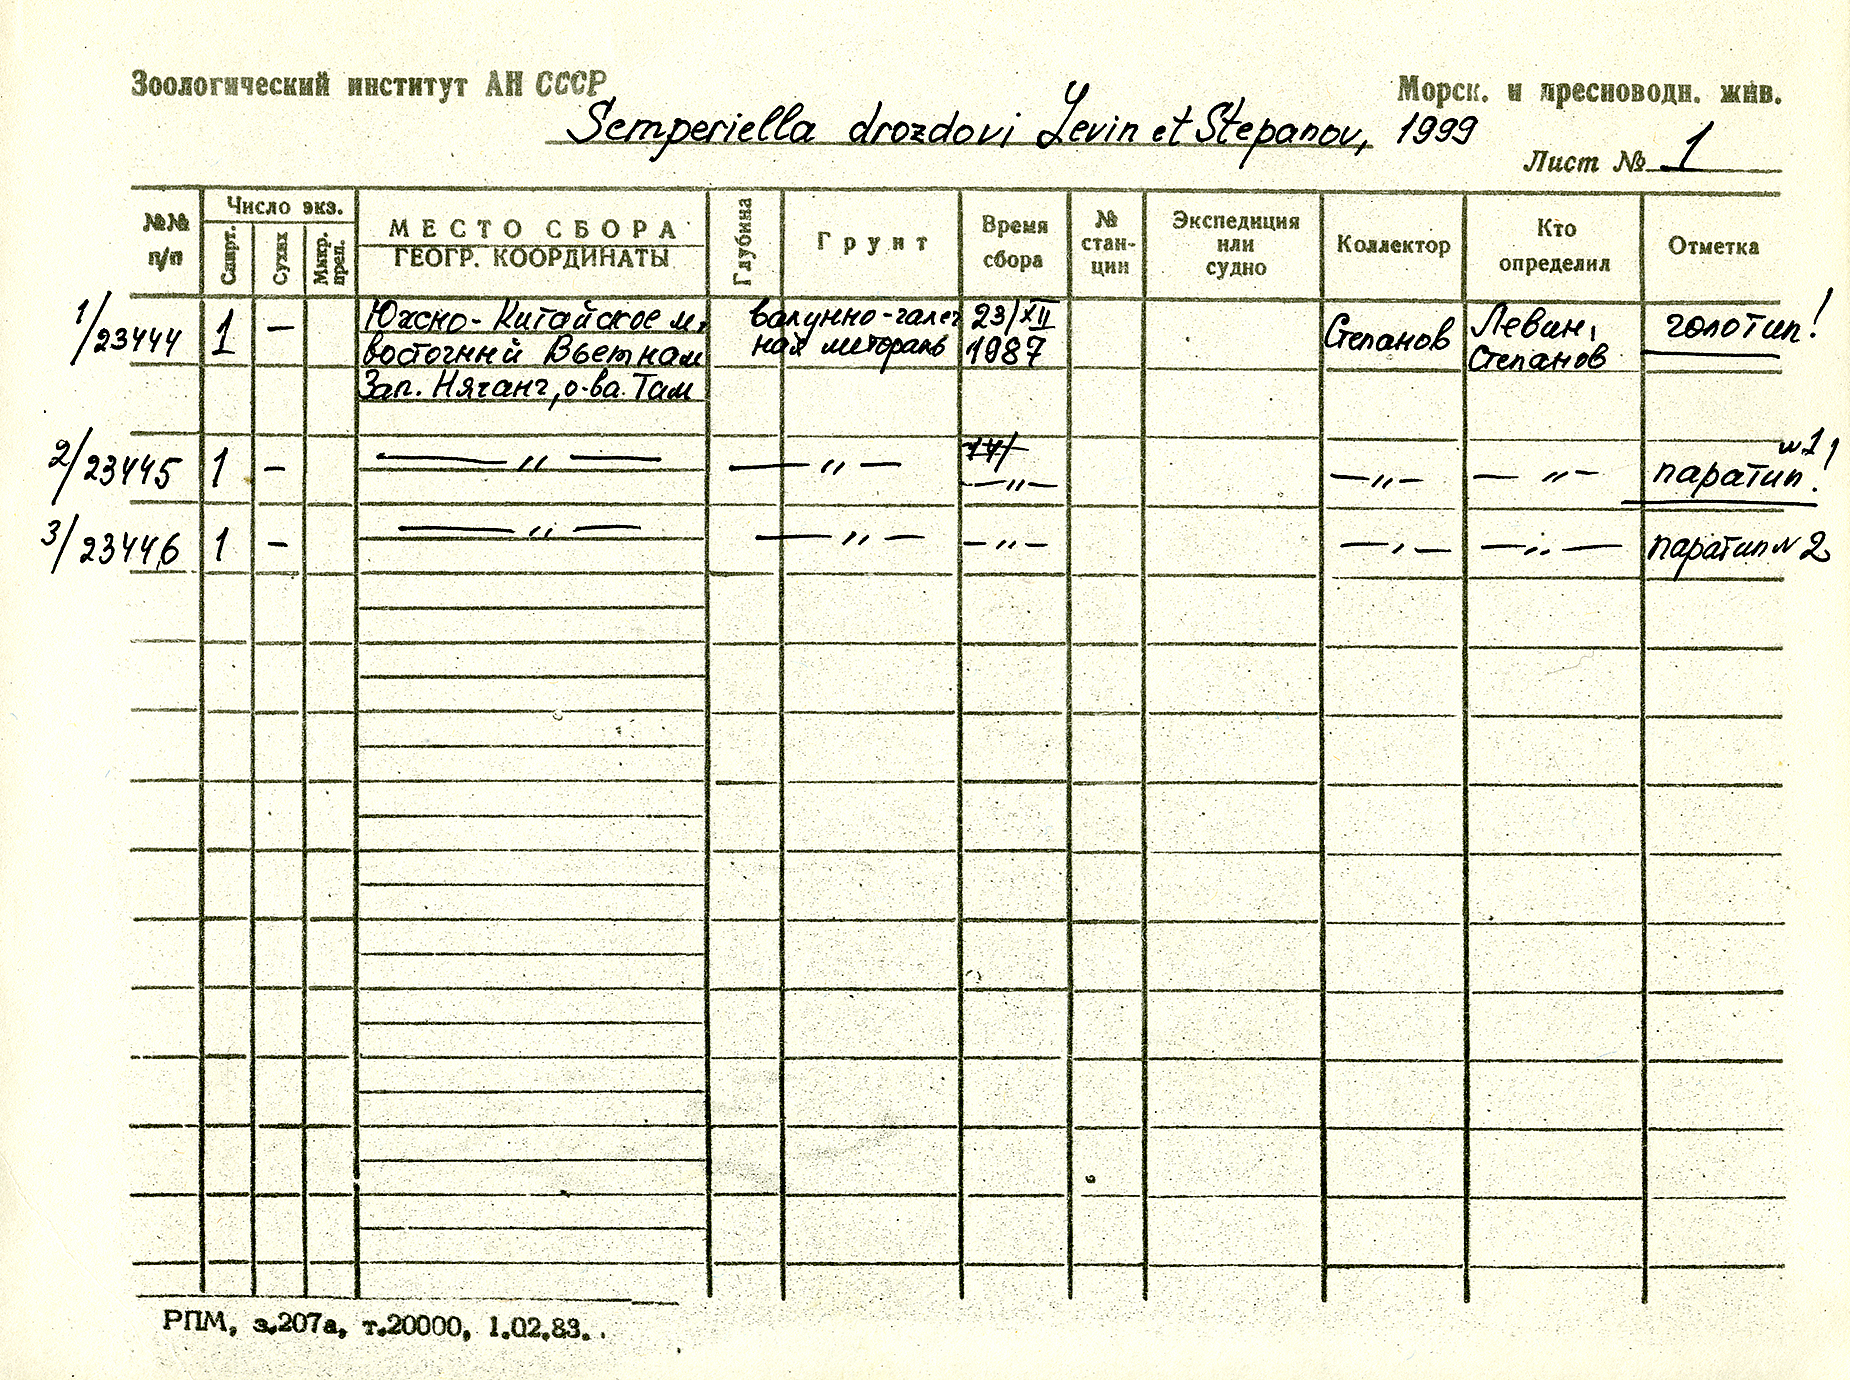 Зоологический институт АН СССР
Морск. и пресноводн. жив.
Semperiella drozdovi Levin et Stepanov, 1999
Лист № 1
№№ п/п
Число экз.
Спирт.
Сухих
Микр. преп.
МЕСТО СБОРА
ГЕОГР. КООРДИНАТЫ
Глубина
Грунт
Время сбора
№ стан-ции
Экспедиция или судно
Коллектор
Кто определил
Отметка
1/23444 1 — Южно-Китайское м., валунно-галеч 23/XII Степанов Левин, голотип!
восточный Вьетнам ная литораль 1987 Степанов
Зап. Нячанг, о-ва Там
2/23445 1 — —〃— —〃— —〃— —〃— —〃— паратип №1!
3/23446 1 — —〃— —〃— —〃— —〃— —〃— паратип № 2
РПМ, з.207а, т.20000, 1.02.83.